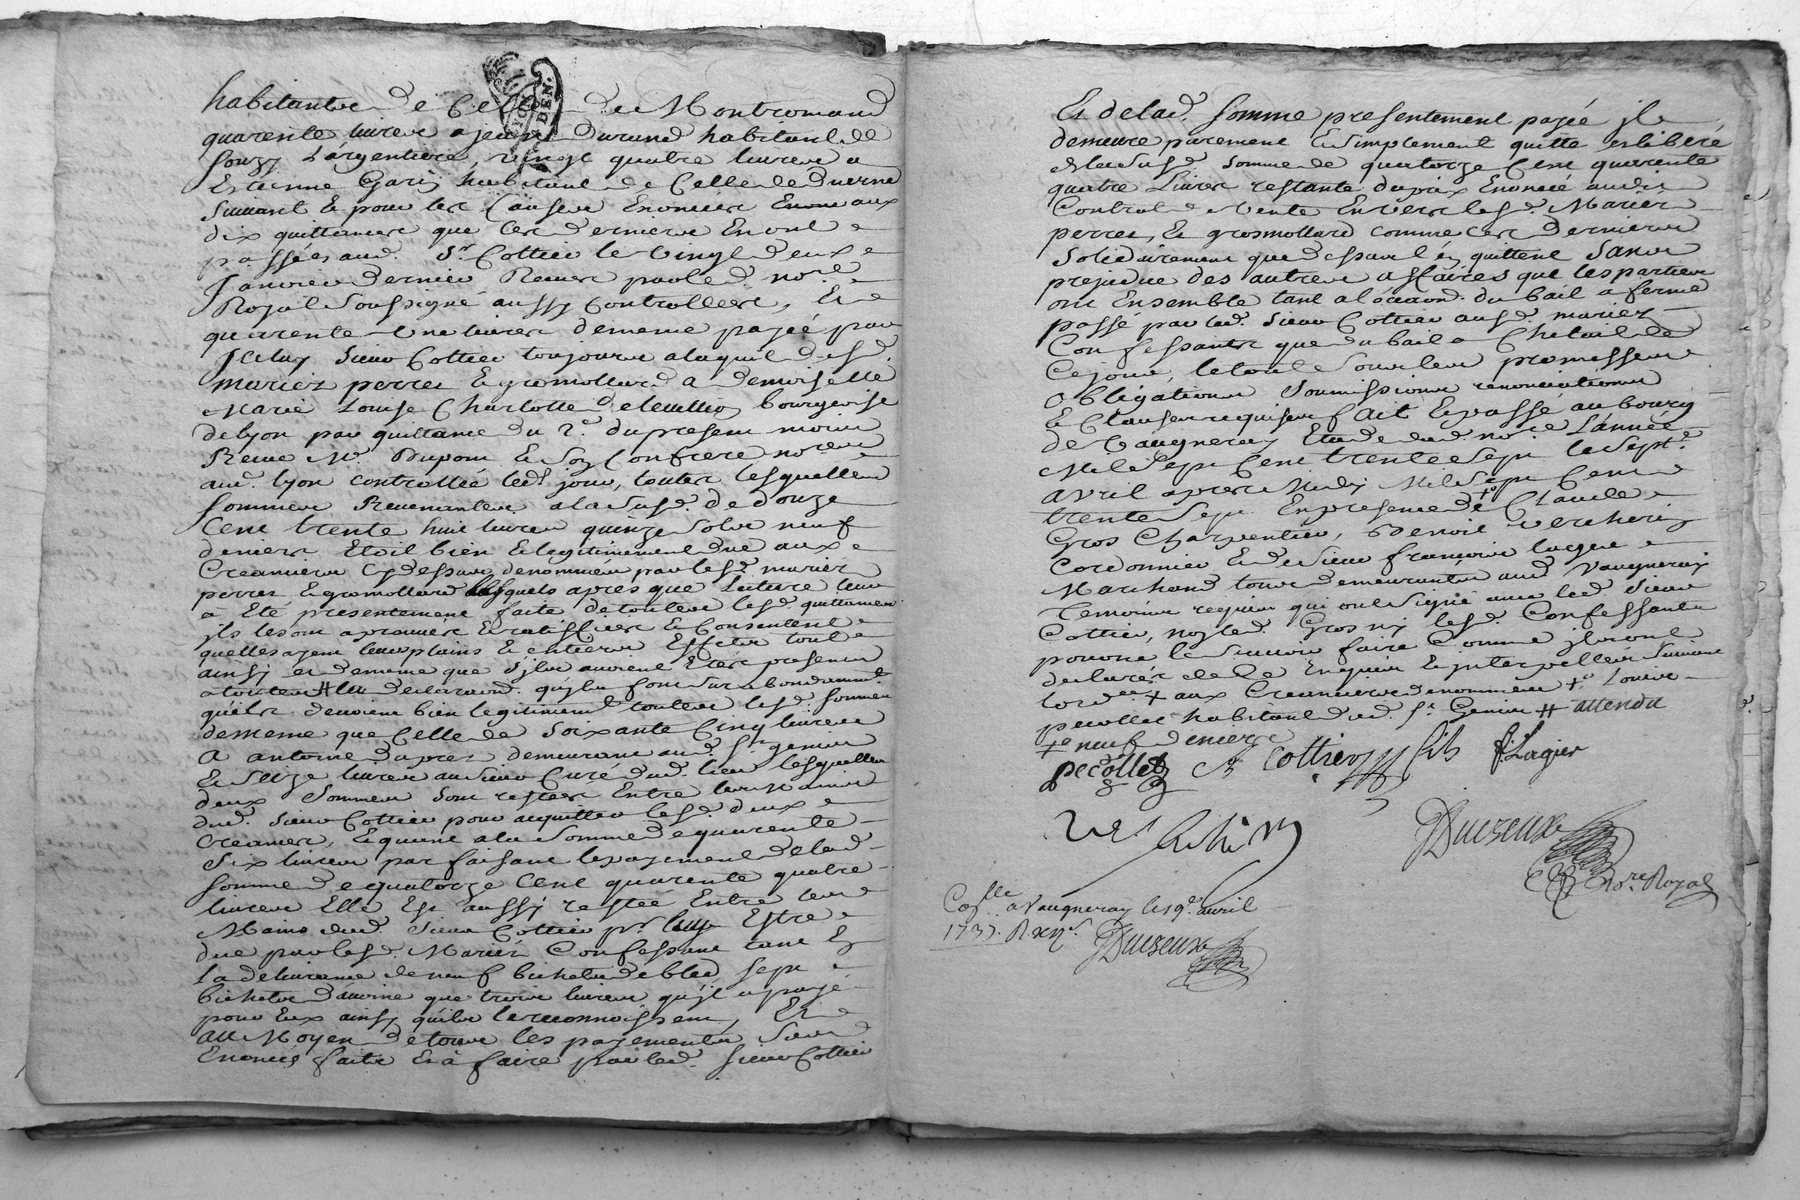 habitante de Celle de Montromand
quarente livres a jean durand habitant de
souzy L'argentiere, vingt quatre livres a
Estienne Garin habitant de Celle de duerne
Suivant & pour les Causes Enoncées aux
dix quittances que Ces derniers En ont
passées aud. Sr. Cottier le vingt deux
Janvier dernier Receues par led. nore.
Royal Soussigné aussy Controllées, Et
quarente une livres de meme payée par
Iceluy Sieur Cottier toujours a laquit desd.
mariez perret & gromollard a demoiselle
Marie Louise Charlotte bourgeoise
de lyon par quittance du 2e. du present mois
Receue Me. Dupont & Son Confrere nores
aud. lyon controllée led. jour, toutes lesquelles
sommes Revenantes a la susd. de douze
Cent trente huit livres quinze sols neuf
deniers Etoit bien & legitimement due aux
Creanciers cy dessus denommés par lesd. mariez
perret & gromollard lesquels apres que Lecture leur
a Eté presentement faite de toutes lesd. quittances
ils les ont aprouvées & ratiffiées & Consentent
quelles ayent leurs plains & entiers Effets tout
ainsy et de meme que s'ils avoient Etés presents
a toutes # declaration qu'ils font surabondamment
qu'ils devoient bien legitiment toutes lesd. sommes
de meme que Celle de soixante Cinq livres
A antoine dupres demeurant aud. St. genis
& seize livres au sieur Curé dud. lieu lesquelles
deux sommes sont restées Entre les mains
dud. Sieur Cottier pour acquitter lesd. deux
Creances, Equant a la Somme de quarente
Six livres parfaisant le payement de lad.
somme de quatorze Cent quarente quatre
livres Elle Est aussy restée Entre les
Mains dud. Sieur Cottier pr. Estre
due par lesd. Mariés Confessant tant En
la delivrance de neuf bichets de bled sept
bichets d'avoine que trois livres qu'il a payé
pour Eux ainsy qu'ils le reconnoissent, Et
Au Moyen de tous les payements Sus
Enoncés faits & à faire par led. Sieur Cottier
Et de lad. somme presentement payée il
demeure purement & simplement quitte et liberé
de lasusd. somme de quatorze Cent quarente
quatre Livres restante du prix Enoncé audit
Contrat de Vente Envers lesd. Mariez
perret, & grosmollard comme Ces derniers
solidairement que dessus l'en quittent Sans
prejudice des autres affaires que les parties
ont Ensemble tant a l'occaon. du bail a ferme
passé par led. Sieur Cottier ausd. mariez
Confessants que du bail a Chetail de
Cejourd, le tout Sous leurs promesses
obligations Soumissions renonciations
& Clauses requises fait & passé au bourg
de Vaugneray Etude dud. nore. L'année
Mil Sept Cent trente Sept le Sept
avril apres Midy Mil Sept Cent
trente Sept En presence de Claude
Gros Charpentier, Benoit vercherin
Cordonnier & de Sieur françois lagier
Marchand tous demeurants aud. Vaugneray
Temoins requis qui ont Signé avec led. Sieur
Cottier, non led. Gros ny lesd. Confessants
pour ne le Scavoir faire Comme ils ont
declarés de le Enquis & Interpellés Suivant
lordce + aux Creanciers denommés +o Louis
pecollet habitant dud. St. Genis # attendu
+e neuf deniers
pecollet Cottier fils f. Lagier
Vercherin
Duizeux
Nore Royal
Collé a Vaugneray le 19e. avril
1737.
Duizeux